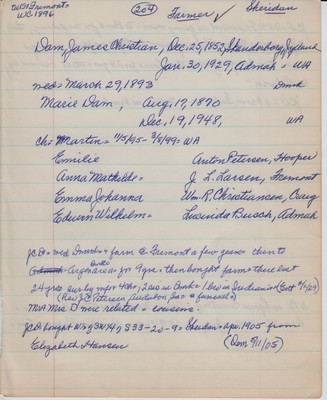 Dan Fremont
W.C. 1896
204
Farmer ✓
Sheridan
Dam, James Christian, Dec. 25, 1852, Skanderborg, Jylland
Jan. 30, 1929, Admah = WA
med = March 29, 1893
Dmk
Marie Dam, Aug. 17, 1870
Dec. 19, 1948, WA
ch = Martin = 11/5/95 - 3/8/99 = WA
Emilie Anton Petersen, Hooper
Anna Mathilde = J. L. Larsen, Fremont
Emma Johanna Wm R. Christiansen, Craig
Edwin Wilhelm = Lucinda Busch, Admah
JCD = med Dmark = farm @ Fremont a few years then to
Argo area for 9 yrs = then bought farm = there last
24 yrs sur by wife 4 ch =
(Rev J. C. Petersen, Audubon Ioa = funeral =)
Mr & Mrs D were related = cousins =
JCD bought W½ of SW¼ of S 33-20-9 = Sheridan = Apr. 1905 from
Elizabeth Hansen (Dem 9/11/05)